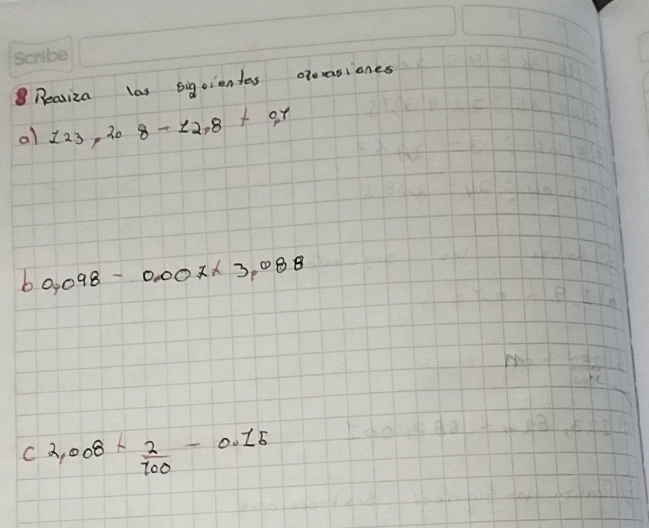 Scribe
8 Realiza las siguientes operasiones
a) 123,208 - 12,8 + 0,1
b 0,098 - 0.007 + 3,088
c 2,008 + 2/100 - 0.15